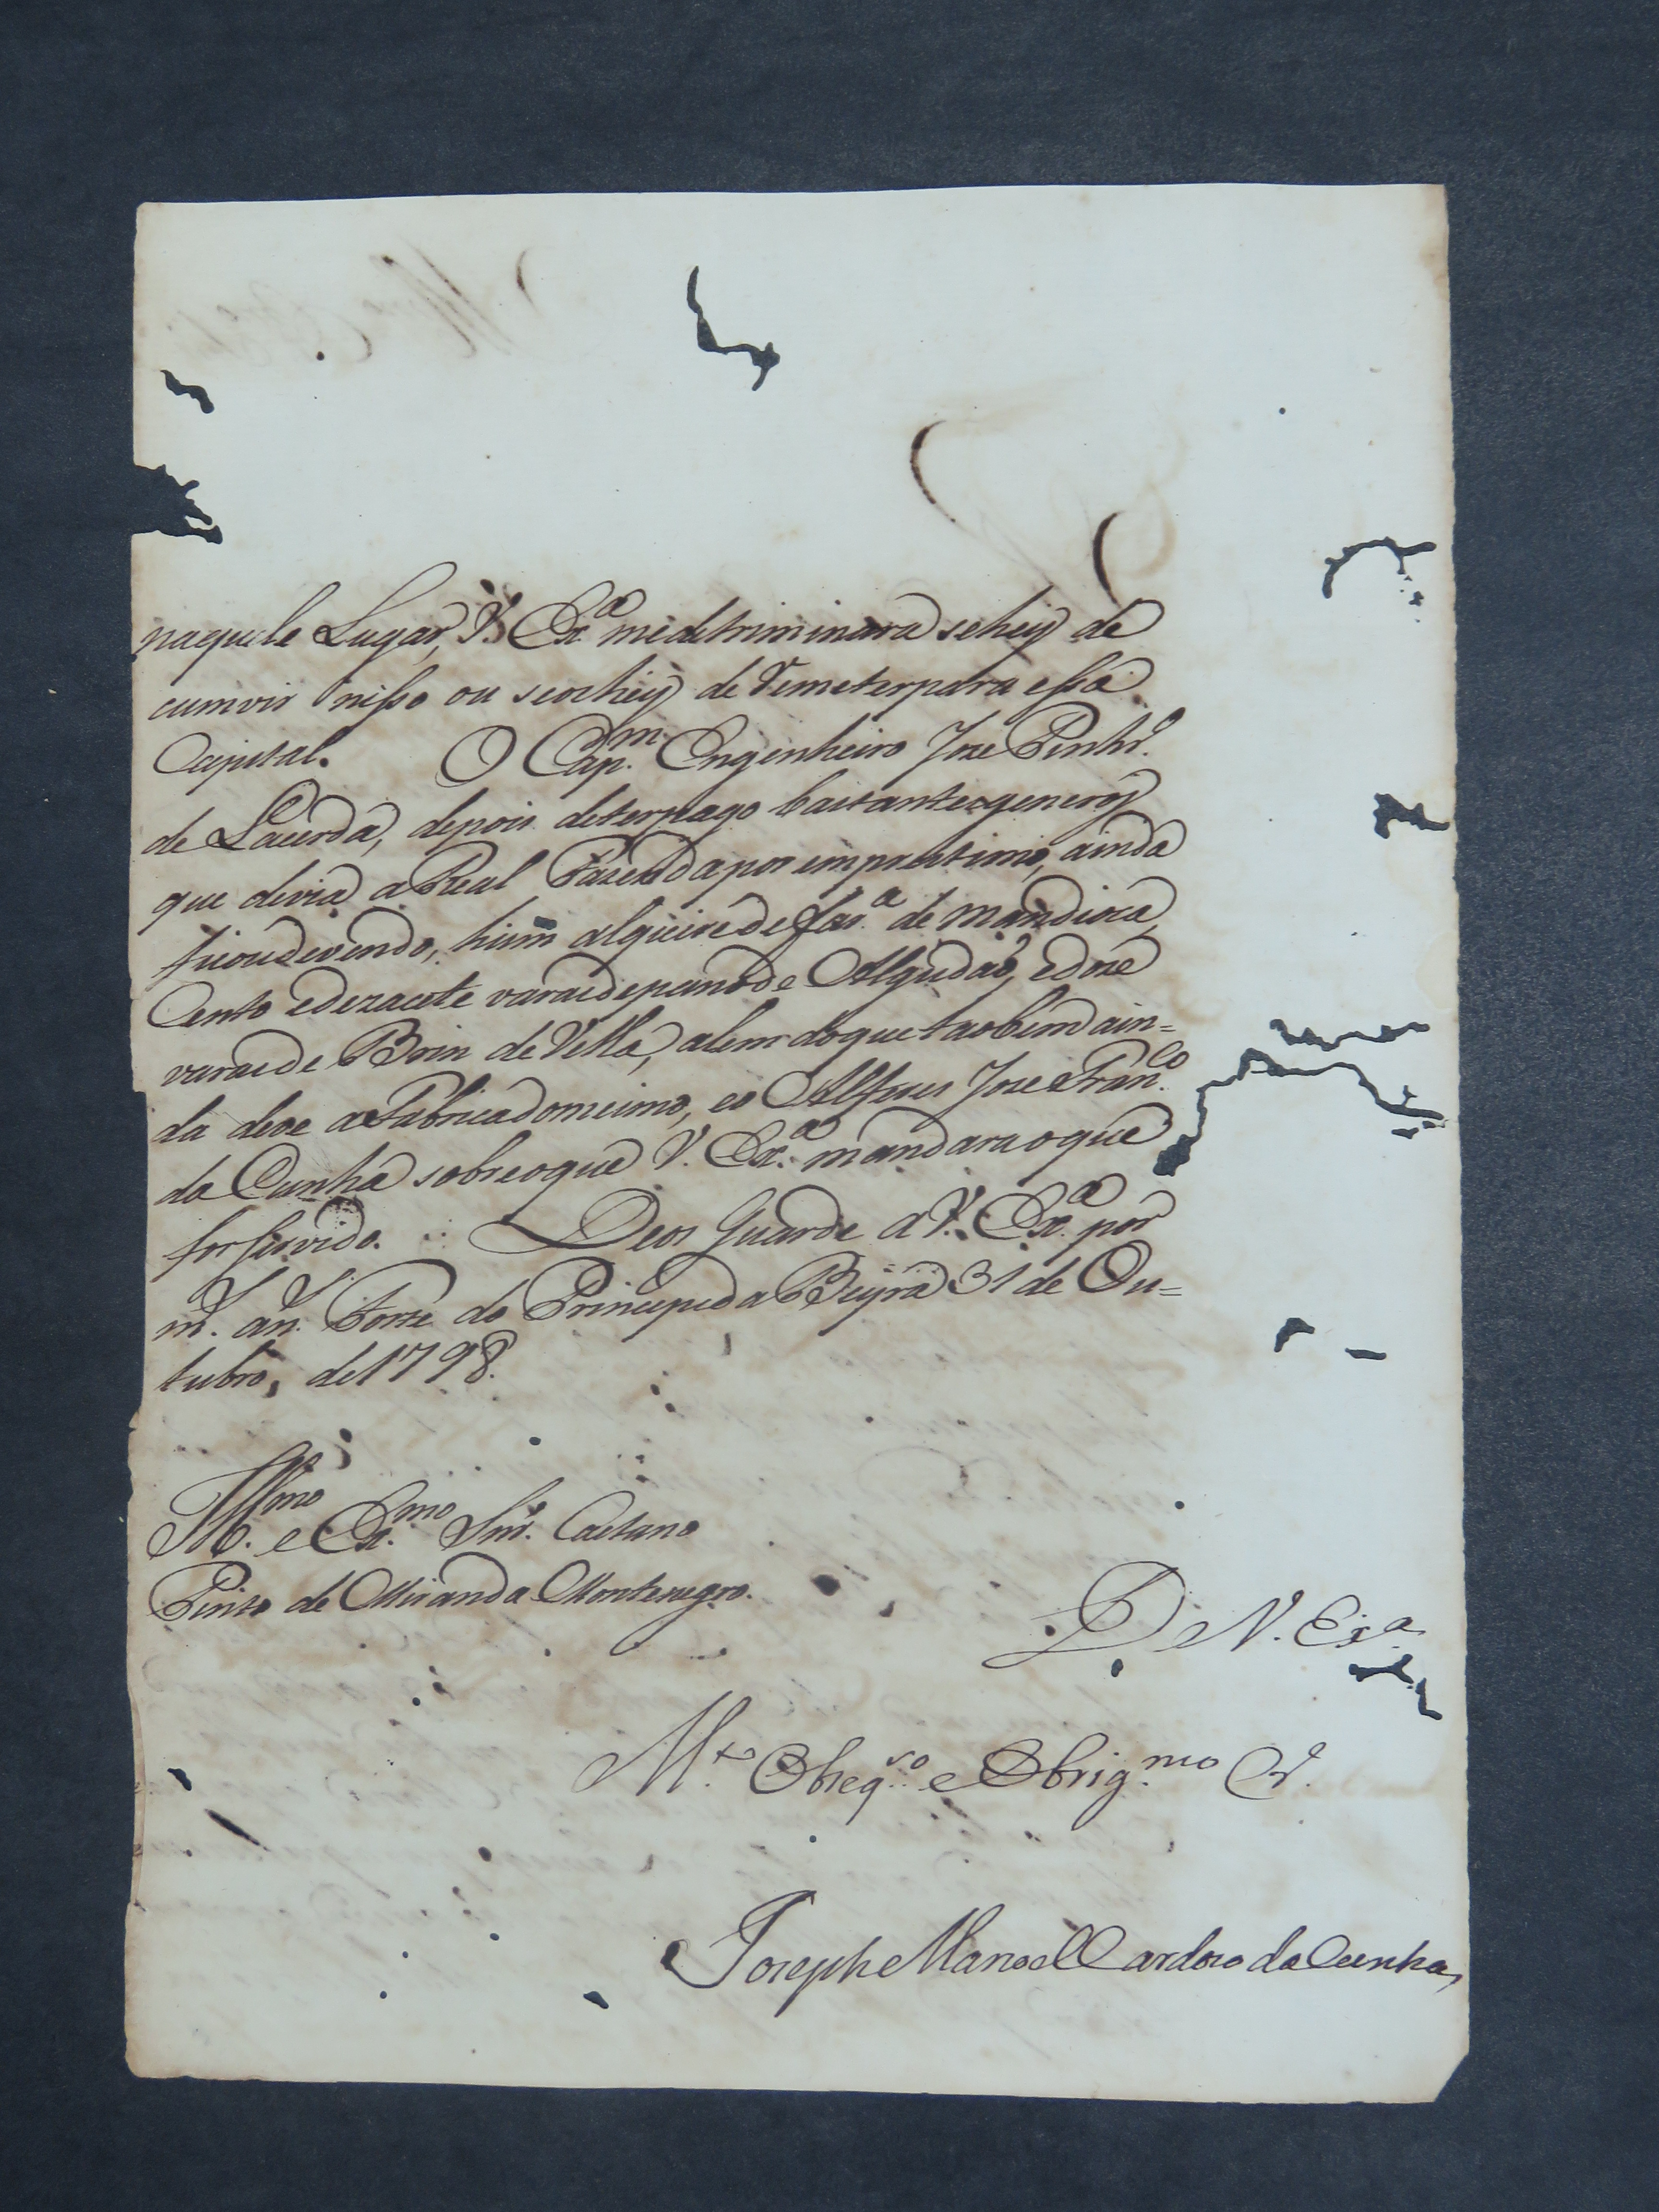 naquele Lugar, V. Ex.ª me detriminará se hey de
cumvir nisso ou se os hey de Remeter para essa
Capital. O Cap.m Engenheiro Joze Pinhr.º
de Lacerda, depois de ter pago bastantes generos
que devia a Real Fazenda por emprestimo, ainda
ficou devendo, hum alqueire de far.ª de mandioca,
Cento e dezacete varas de pano de Algudaõ, e doze
varas de Brim de Vella, alem do que taobem ain=
da deve a Fabrica do mesmo, e o Alferes Joze Fran.co
da Cunha sobre o que V. Ex.ª mandara o que
for servido. Deos Guarde a V. Ex.ª por
m.s an.s Forte do Principe da Beyra 31 de Ou=
tubro, de 1798.
Ill.mo e Ex.mo Snr. Caetano
Pinto de Miranda Montenegro.
De V. Exª
M.to Obeq.so e Obrig.mo Cr.
Joseph Manoel Cardozo da Cunha,